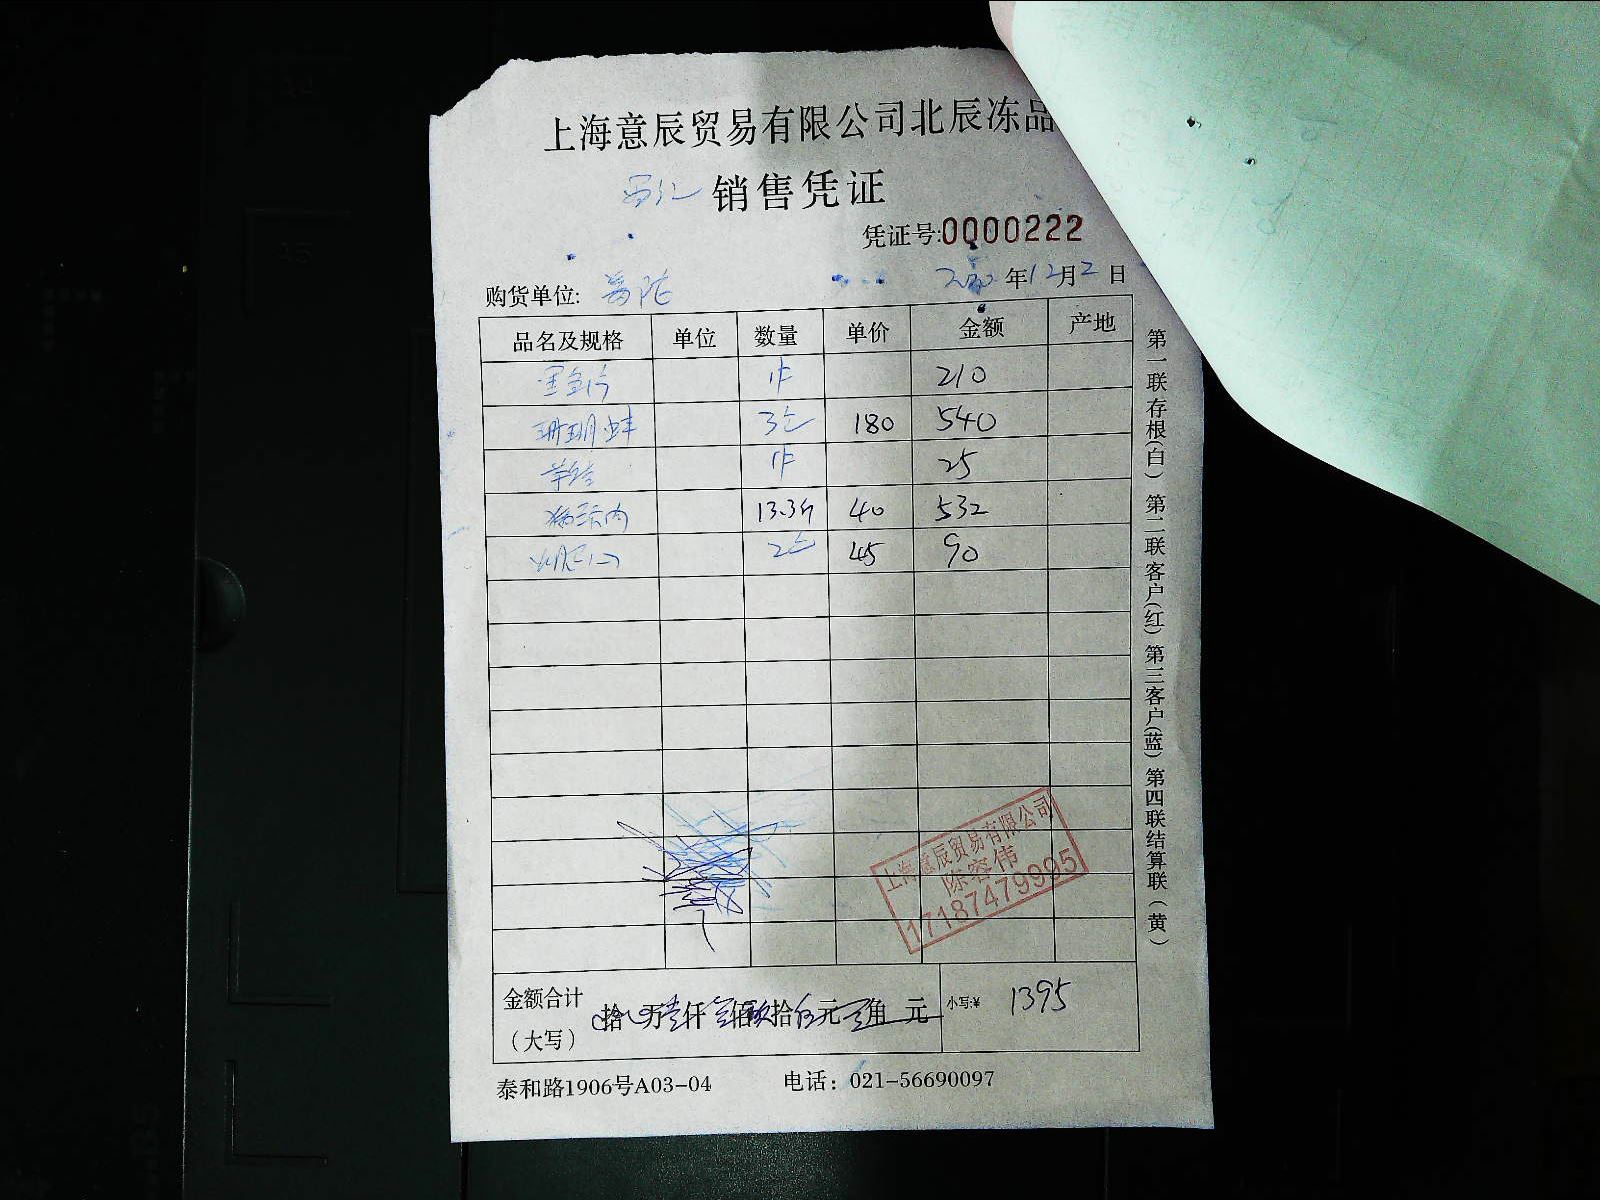 上海意辰贸易有限公司北辰冻品
销售凭证
凭证号:0000222
购货单位:
年12月2日
品名及规格 单位 数量 单价 金额 产地
1件 210
珊瑚蚌 3包 180 540
1件 25
13.3斤 40 532
2包 45 90
上海意辰贸易有限公司
陈容伟
17187479995
金额合计
（大写）
拾 万壹仟叁佰玖拾伍元 角 元 小写:¥ 1395
泰和路1906号A03-04 电话：021-56690097
第一联存根(白) 第二联客户(红) 第三客户(蓝) 第四联结算联(黄)